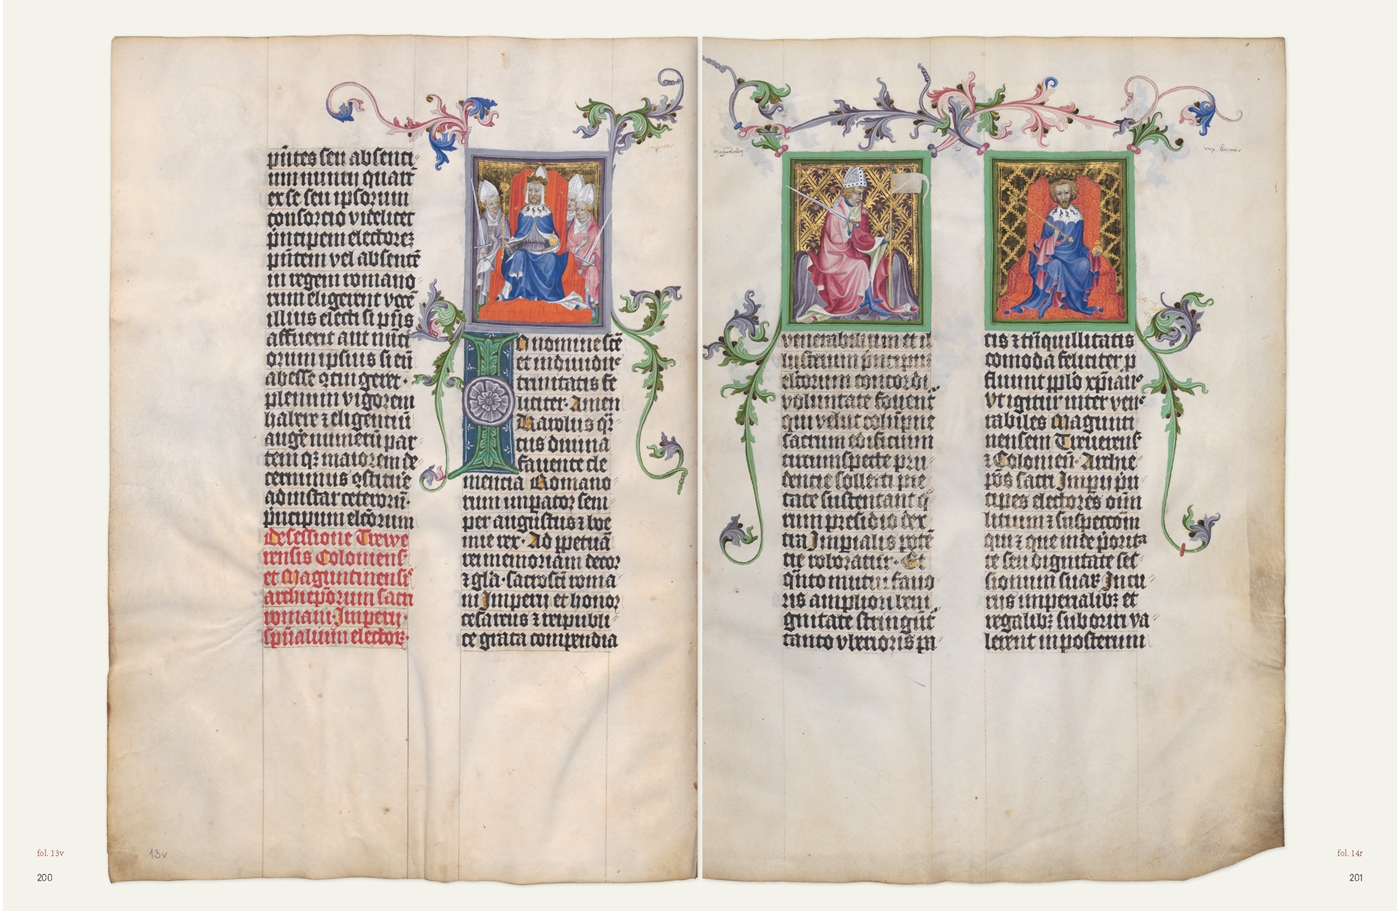 pñtes seu absenti
um nutui quatt
er se seu ipsorum
consorcio videlicet
pͥncipem electorez
pñtem vel absentē
in regem romano
rum eligerent vgeͬ
illius electi si pñs
affuerit aut iniči
orum ipsius si eū
abesse ꝯtingeret
plenum vigorem
habere ⁊ eligentiū
augeͬ numerū par
tem qꝫ maiorem de
cernimus ꝯstitueͬ
ad instar ceterorū
pͥncipum eltorum
De sessione Treue
rensis Coloniensꝭ
et Maguntinensꝭ
archiepōrum sacri
romani Imperij
spūalium electorꝝ
In nomine scē
et indiuidue
trinitatis fe
liciter Amen
Karolus qͬ
tus diuina
fauente cle
mencia Romano
rum impator sem
per augustus ⁊ boe
mie rex Ad ppetuā
rei memoriam decorͬ
⁊ gla sacrosci roma
ni Imperij et honor
cesareus ⁊ reipubli
ce grata compendia
venerabilium et il
lustrium pͥncipum
eltorum concordi
voluntate fouent
qui velut columpne
sacrum edificium
circumspecte pru
dencie sollerti pie
tate sustentant qͦ
rum presidio dex
tra Imperialis potē
cie roboratur Et
qͣnto mutui fauo
ris ampliori beni
gnitate stringunt
tanto vberioris pa
cis ⁊ tͣnquillitatis
comoda feliciter p
fluunt pplo xpiano
Vt igitur inter vene
rabiles Magunti
nensem Treuerensꝭ
⁊ Coloniensꝭ Archie
pōs sacri Impij pͥn
cipes electores oīm
litium ⁊ suspeccōm
qui ⁊ que inde ꝑorita
te seu dignitate ses
sionum suarꝝ In cu
rijs imperialibꝫ et
regalibꝫ suboriri va
lerent inposterum
13v
fol. 13v
200
fol. 14r
201